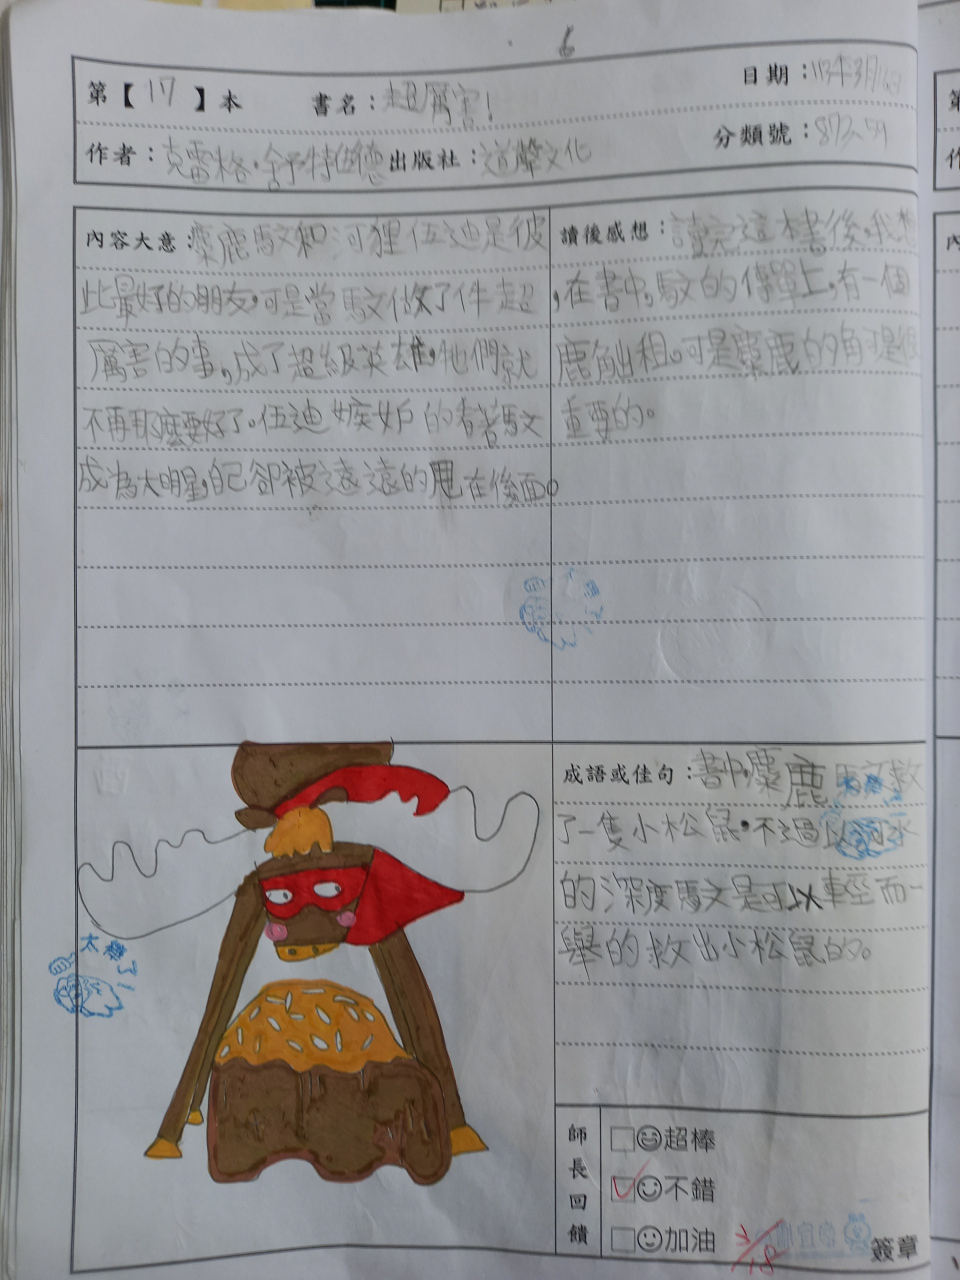 第【17】本 書名：超厲害！ 日期：113年3月
作者：克雷格．舒特伍德 出版社：道聲文化 分類號：873.59
內容大意：麋鹿馭文和河狸伍迪是彼
此最好的朋友，可是當馭文做了件超
厲害的事，成了超級英雄，牠們就
不再那麼要好了。伍迪嫉妒的看著馭文
成為大明星，自己卻被遠遠的甩在後面。
讀後感想：讀完這本書後，我想
，在書中，馭文的傳單上，有一個
鹿角出租。可是麋鹿的角可是很
重要的。
成語或佳句：書中，麋鹿馭文救
了一隻小松鼠，不過以河水
的深度馭文是可以輕而一
舉的救出小松鼠的。
太棒了！
師長回饋
超棒
不錯
加油
3/18
簽章